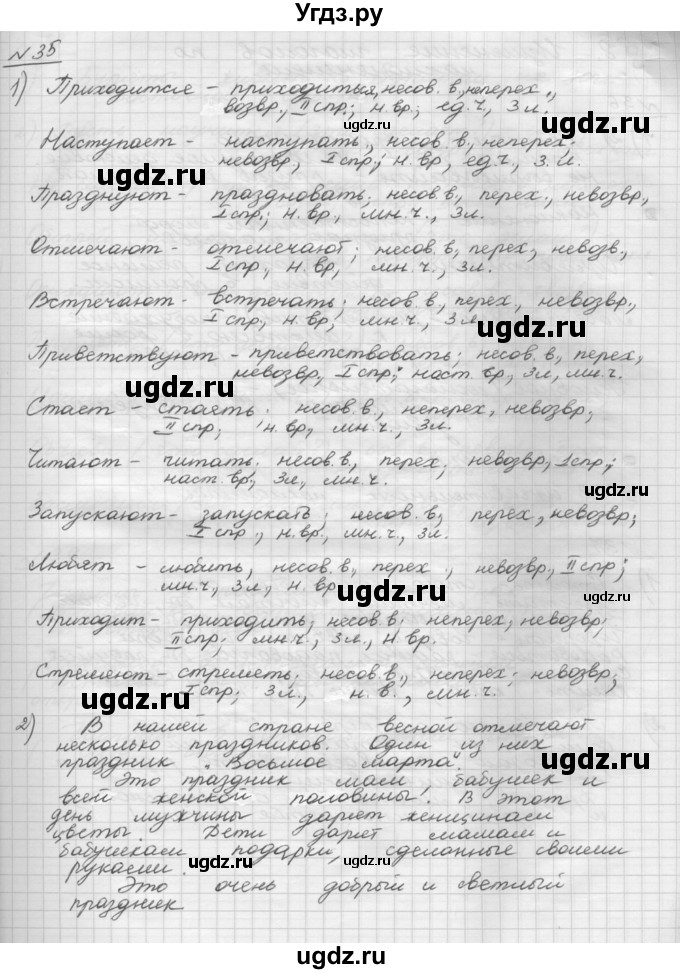 Угдз.ру
№ 35
1) Приходится – приходиться, несов. в, неперех.,
возвр, II спр.; н. вр; ед. ч, 3 л.
ugdz.ru
Наступает – наступать, несов. в, неперех.
невозвр, I спр; н. вр, ед. ч, 3. л.
ugdz.ru ugdz.ru
Празднуют – праздновать; несов. в, перех., невозвр,
I спр.; н. вр, мн. ч., 3 л.
Отмечают – отмечают; несов. в, перех, невозв,
I спр, н. вр, мн. ч., 3 л.
ugdz.ru
Встречают – встречать; несов. в, перех, невозвр.,
I спр, н. вр, мн. ч, 3 л.
ugdz.ru
Приветствуют – приветствовать; несов. в, перех,
невозвр, I спр; наст. вр, 3 л, мн. ч.
ugdz.ru
Стает – стаять. несов. в., неперех, невозвр;
II спр; н. вр, мн. ч., 3 л.
ugdz.ru
Читают – читать. несов. в, перех; невозвр, I спр;
наст. вр, 3 л, мн. ч.
ugdz.ru
Запускают – запускать; несов. в, перех, невозвр;
I спр., н. вр, мн. ч, 3 л.
ugdz.ru
Любят – любить, несов. в, перех., невозвр., II спр;
мн. ч, 3 л, н. вр
ugdz.ru ugdz.ru
Приходит – приходить; несов. в. неперех, невозвр;
II спр; мн. ч., 3 л., н. вр.
ugdz.ru
Стремеют – стреметь; несов. в, неперех; невозвр;
I спр; 3 л., н. в., мн. ч.
ugdz.ru ugdz.ru
2) В нашей стране весной отмечают
несколько праздников. Один из них
праздник „Восьмое марта“.
ugdz.ru
Это праздник мам бабушек и
всей женской половины! В этот
день мужчины дарят женщинам
цветы. Дети дарят мамам и
ugdz.ru
бабушкам подарки, сделанные своими
руками.
ugdz.ru ugdz.ru
Это очень добрый и светлый
праздник
ugdz.ru